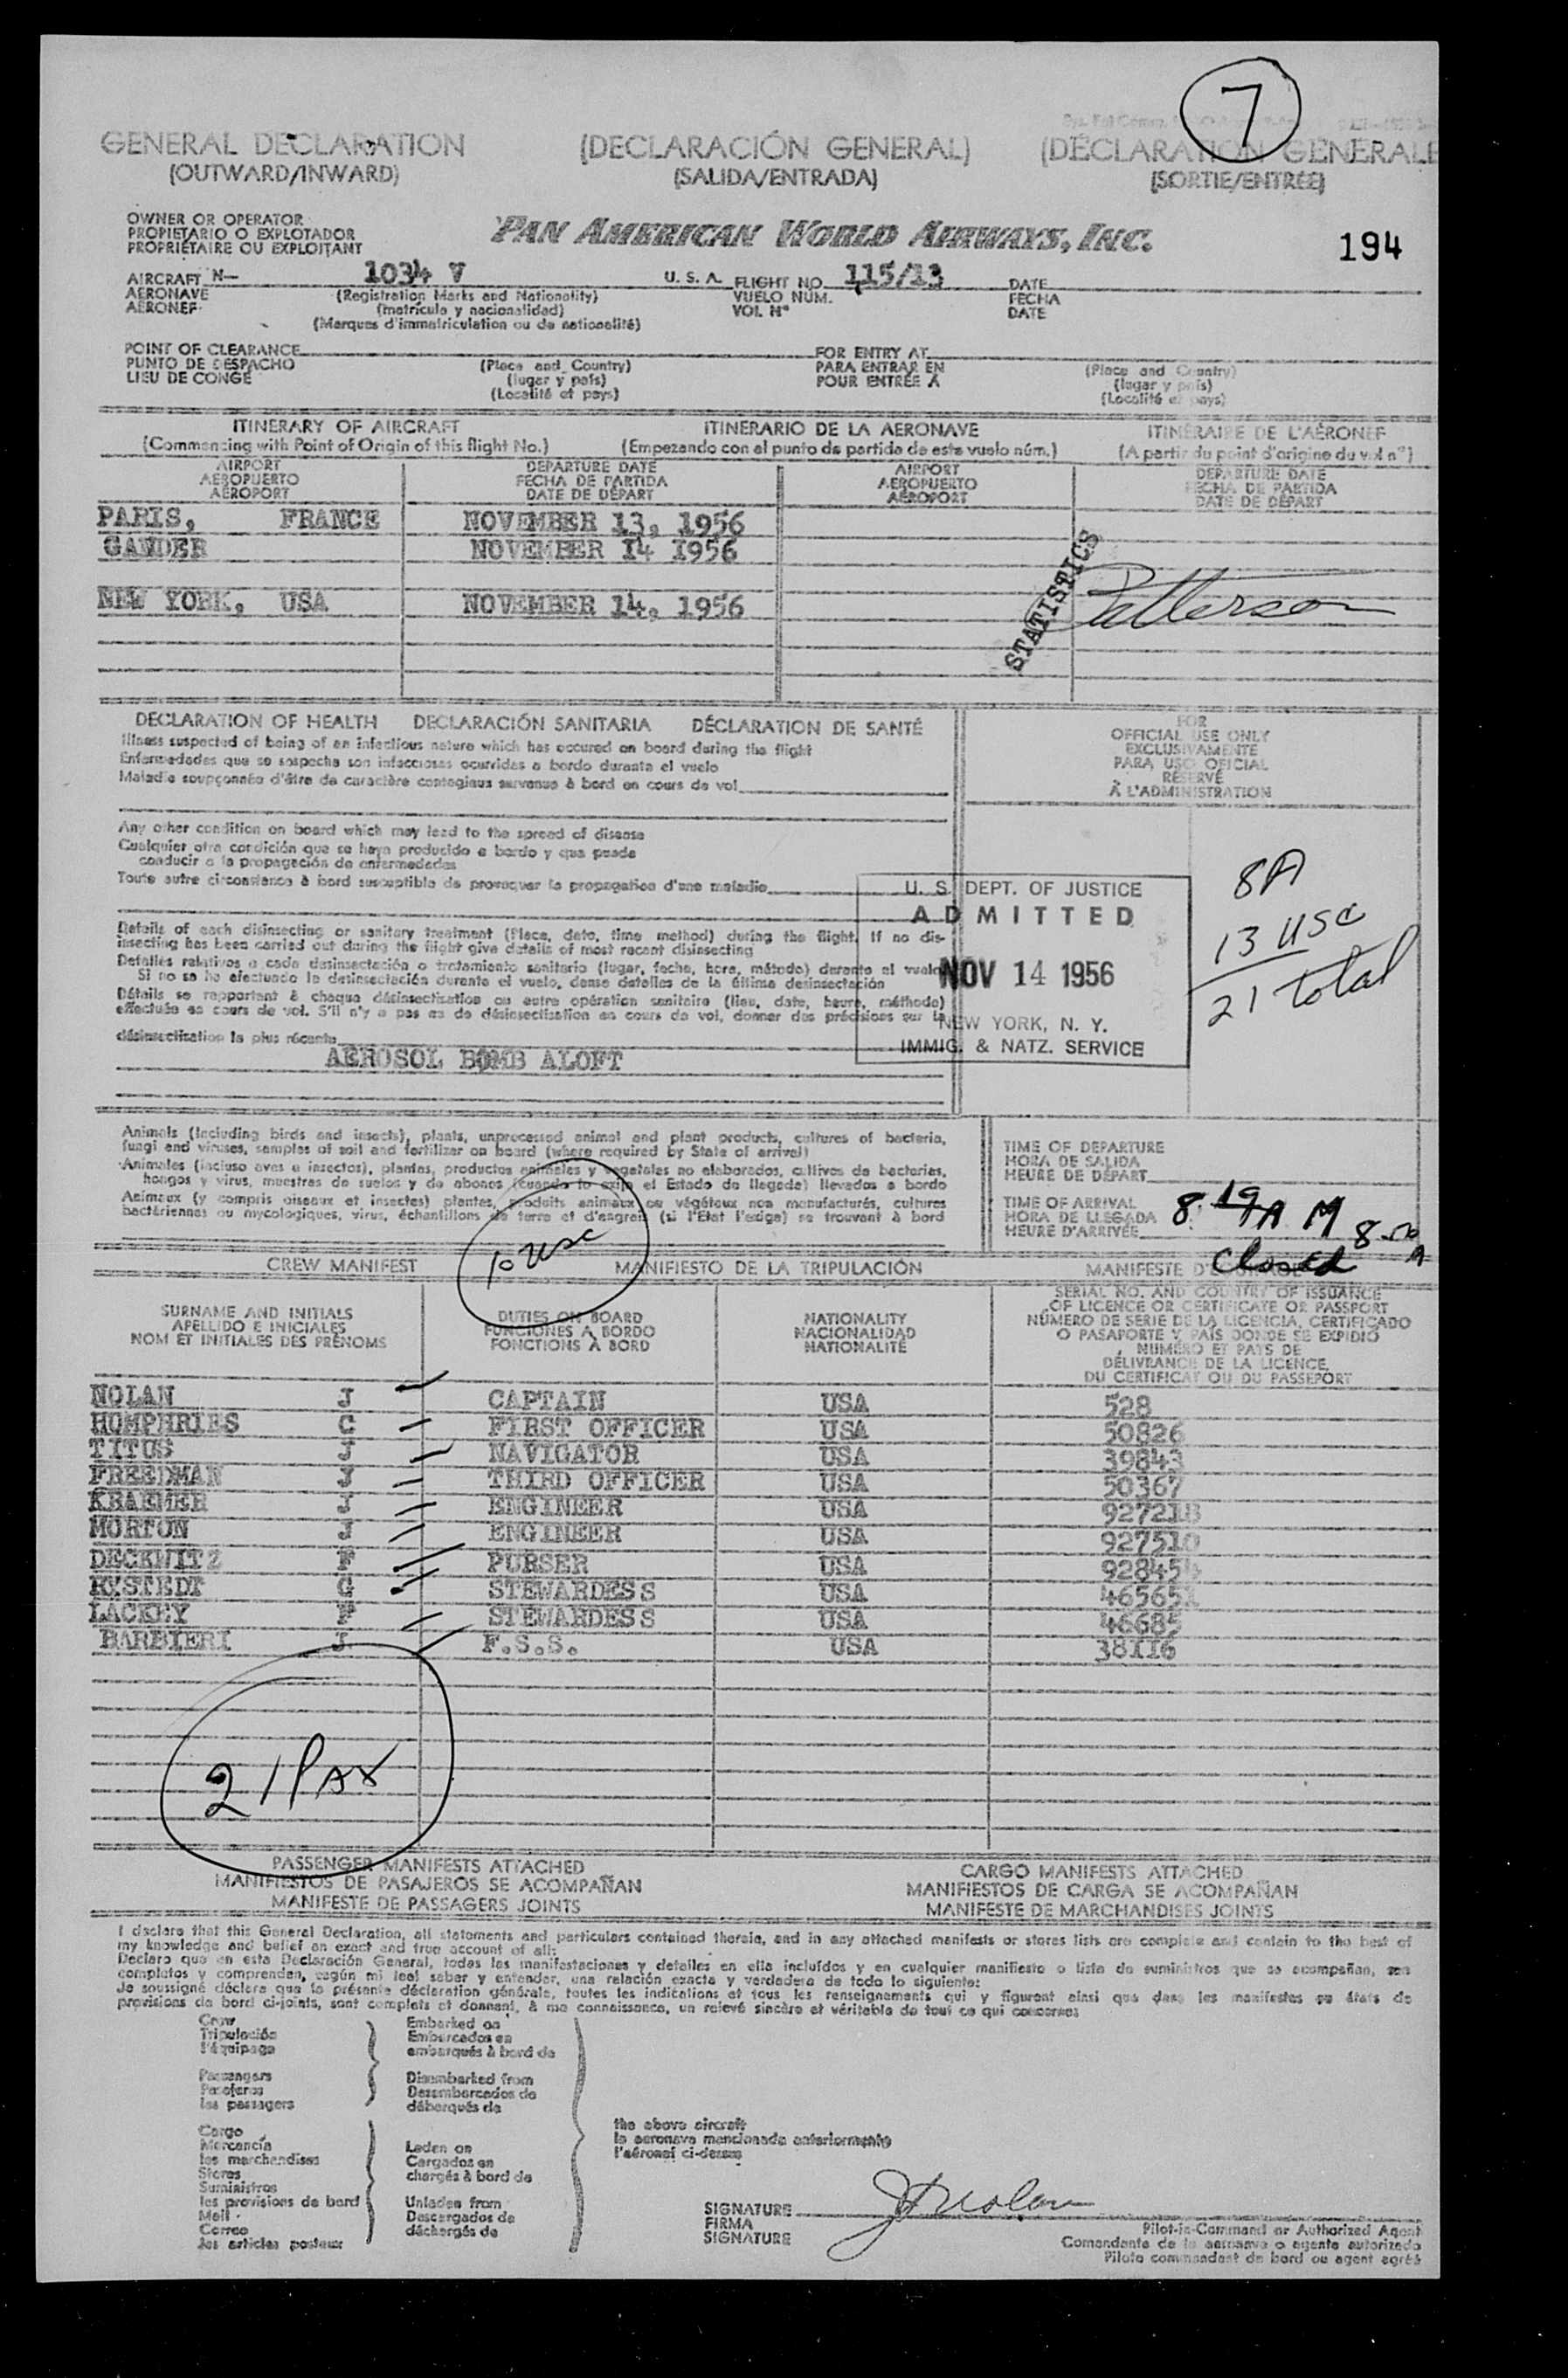 7
GENERAL DECLARATION (DECLARACIÓN GENERAL) (DÉCLARATION GENERALE
(OUTWARD/INWARD) (SALIDA/ENTRADA) (SORTIE/ENTRÉE)
OWNER OR OPERATOR
PROPIETARIO O EXPLOTADOR
PROPRIÉTAIRE OU EXPLOITANT
PAN AMERICAN WORLD AIRWAYS, INC.
194
AIRCRAFT N— 1034 V U. S. A. FLIGHT NO. 115/13 DATE
AERONAVE (Registration Marks and Nationality) VUELO NUM. FECHA
AÉRONEF (matrícula y nacionalidad) VOL Nº DATE
(Marques d'immatriculation ou de nationalité)
POINT OF CLEARANCE FOR ENTRY AT
PUNTO DE DESPACHO (Place and Country) PARA ENTRAR EN (Place and Country)
LIEU DE CONGÉ (lugar y país) POUR ENTRÉE À (lugar y país)
(Localité et pays) (Localité et pays)
ITINERARY OF AIRCRAFT ITINERARIO DE LA AERONAVE ITINÉRAIRE DE L'AÉRONEF
(Commencing with Point of Origin of this flight No.) (Empezando con el punto de partida de este vuelo núm.) (A partir du point d'origine du vol nº)
AIRPORT DEPARTURE DATE AIRPORT DEPARTURE DATE
AEROPUERTO FECHA DE PARTIDA AEROPUERTO FECHA DE PARTIDA
AÉROPORT DATE DE DÉPART AÉROPORT DATE DE DÉPART
PARIS, FRANCE NOVEMBER 13, 1956
GANDER NOVEMBER 14 1956
NEW YORK, USA NOVEMBER 14, 1956
STATISTICS
Patterson
DECLARATION OF HEALTH DECLARACIÓN SANITARIA DÉCLARATION DE SANTÉ
Illness suspected of being of an infectious nature which has occured on board during the flight
Enfermedades que se sospecha son infecciosas ocurridas a bordo durante el vuelo
Maladie soupçonnée d'être de caractère contagieux survenue à bord en cours de vol
FOR
OFFICIAL USE ONLY
EXCLUSIVAMENTE
PARA USO OFICIAL
RÉSERVÉ
À L'ADMINISTRATION
Any other condition on board which may lead to the spread of disease
Cualquier otra condición que se haya producido a bordo y que puede
conducir a la propagación de enfermedades
Toute autre circonstance à bord susceptible de provoquer la propagation d'une maladie
8A
13 USC
21 total
U. S. DEPT. OF JUSTICE
ADMITTED
NOV 14 1956
NEW YORK, N. Y.
IMMIG. & NATZ. SERVICE
Details of each disinsecting or sanitary treatment (Place, date, time method) during the flight. If no dis-
insecting has been carried out during the flight give details of most recent disinsecting
Detalles relativos a cada desinsectación o tratamiento sanitario (lugar, fecha, hora, método) durante el vuelo
Si no se ha efectuado la desinsectación durante el vuelo, dense detalles de la última desinsectación
Détails se rapportant à chaque désinsectisation ou autre opération sanitaire (lieu, date, heure, méthode)
effectuée en cours de vol. S'il n'y a pas eu de désinsectisation en cours de vol, donner des précisions sur la
désinsectisation la plus récente
AEROSOL BOMB ALOFT
Animals (including birds and insects), plants, unprocessed animal and plant products, cultures of bacteria,
fungi and viruses, samples of soil and fertilizer on board (where required by State of arrival)
Animales (incluso aves e insectos), plantas, productos animales y vegetales no elaborados, cultivos de bacterias,
hongos y virus, muestras de suelos y de abonos (cuando lo exija el Estado de llegada) llevados a bordo
Animaux (y compris oiseaux et insectes) plantes, produits animaux ou végétaux non manufacturés, cultures
bactériennes ou mycologiques, virus, échantillons de terre et d'engrais (si l'Etat l'exige) se trouvant à bord
TIME OF DEPARTURE
HORA DE SALIDA
HEURE DE DÉPART
TIME OF ARRIVAL
HORA DE LLEGADA
HEURE D'ARRIVÉE
8:19 A M
Closed 8-50 A
10 USC
CREW MANIFEST MANIFIESTO DE LA TRIPULACIÓN MANIFESTE D'ÉQUIPAGE
SURNAME AND INITIALS
APELLIDO E INICIALES
NOM ET INITIALES DES PRÉNOMS
DUTIES ON BOARD
FUNCIONES A BORDO
FONCTIONS À BORD
NATIONALITY
NACIONALIDAD
NATIONALITÉ
SERIAL NO. AND COUNTRY OF ISSUANCE
OF LICENCE OR CERTIFICATE OR PASSPORT
NÚMERO DE SERIE DE LA LICENCIA, CERTIFICADO
O PASAPORTE Y PAÍS DONDE SE EXPIDIÓ
NUMÉRO ET PAYS DE
DÉLIVRANCE DE LA LICENCE,
DU CERTIFICAT OU DU PASSEPORT
NOLAN J CAPTAIN USA 528
HOMPHRIES C FIRST OFFICER USA 50826
TITUS J NAVIGATOR USA 39843
FREEDMAN J THIRD OFFICER USA 50367
KRAEMER J ENGINEER USA 927218
MORTON J ENGINEER USA 927510
DECKWITZ F PURSER USA 928454
RYSTEDT G STEWARDESS USA 465651
LACKEY F STEWARDESS USA 46685
BARBIERI J F.S.S. USA 38116
21 PAX
PASSENGER MANIFESTS ATTACHED CARGO MANIFESTS ATTACHED
MANIFIESTOS DE PASAJEROS SE ACOMPAÑAN MANIFIESTOS DE CARGA SE ACOMPAÑAN
MANIFESTE DE PASSAGERS JOINTS MANIFESTE DE MARCHANDISES JOINTS
I declare that this General Declaration, all statements and particulars contained therein, and in any attached manifests or stores lists are complete and contain to the best of
my knowledge and belief an exact and true account of all:
Declaro que en esta Declaración General, todas las manifestaciones y detalles en ella incluídos y en cualquier manifiesto o lista de suministros que se acompañan, son
completos y comprenden, según mi leal saber y entender, una relación exacta y verdadera de todo lo siguiente:
Je soussigné déclare que la présente déclaration générale, toutes les indications et tous les renseignements qui y figurent ainsi que dans les manifestes ou états de
provisions de bord ci-joints, sont complets et donnent, à ma connaissance, un relevé sincère et véritable de tout ce qui concerne:
Crew
Tripulación
l'équipage
Passengers
Pasajeros
les passagers
Cargo
Mercancía
les marchandises
Stores
Suministros
les provisions de bord
Mail
Correo
les articles postaux
Embarked on
Embarcados en
embarqués à bord de
Disembarked from
Desembarcados de
débarqués de
Laden on
Cargados en
chargés à bord de
Unladen from
Descargados de
déchargés de
the above aircraft
la aeronave mencionada anteriormente
l'aéronef ci-dessus
SIGNATURE J Nolan
FIRMA
SIGNATURE
Pilot-in-Command or Authorized Agent
Comandante de la aeronave o agente autorizado
Pilote commandant de bord ou agent agréé